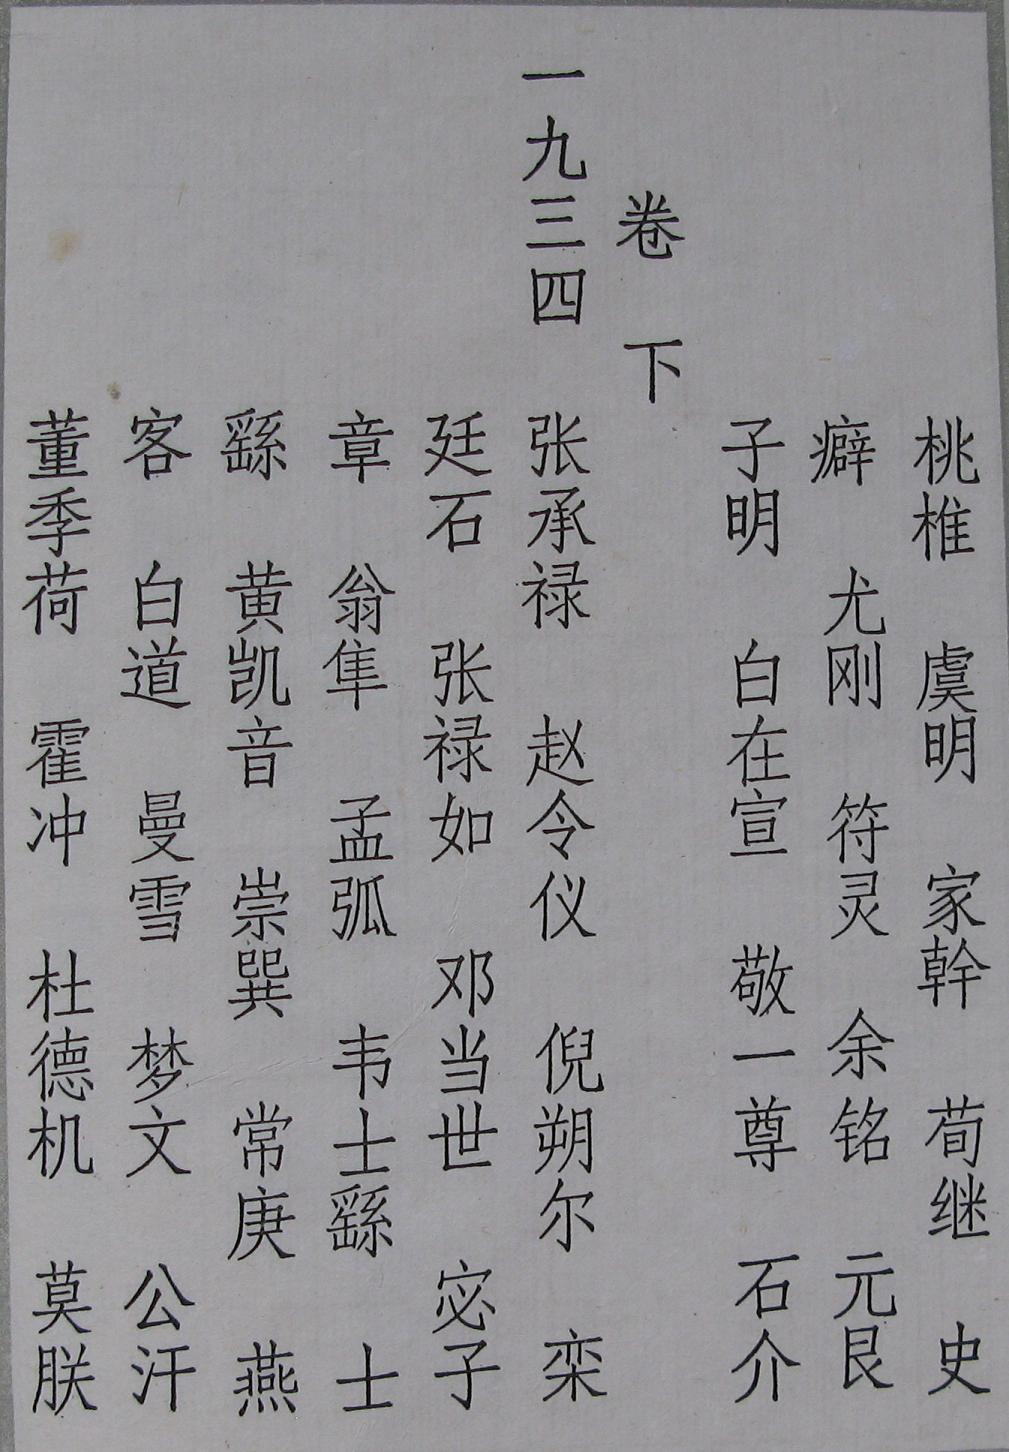 桃椎 虞明 家幹 荀继 史
癖 尤刚 符灵 余铭 元艮
子明 白在宣 敬一尊 石介
卷 下
一九三四 张承禄 赵令仪 倪朔尔 栾
廷石 张禄如 邓当世 宓子
章 翁隼 孟弧 韦士繇 士
繇 黄凯音 崇巽 常庚 燕
客 白道 曼雪 梦文 公汗
董季荷 霍冲 杜德机 莫朕